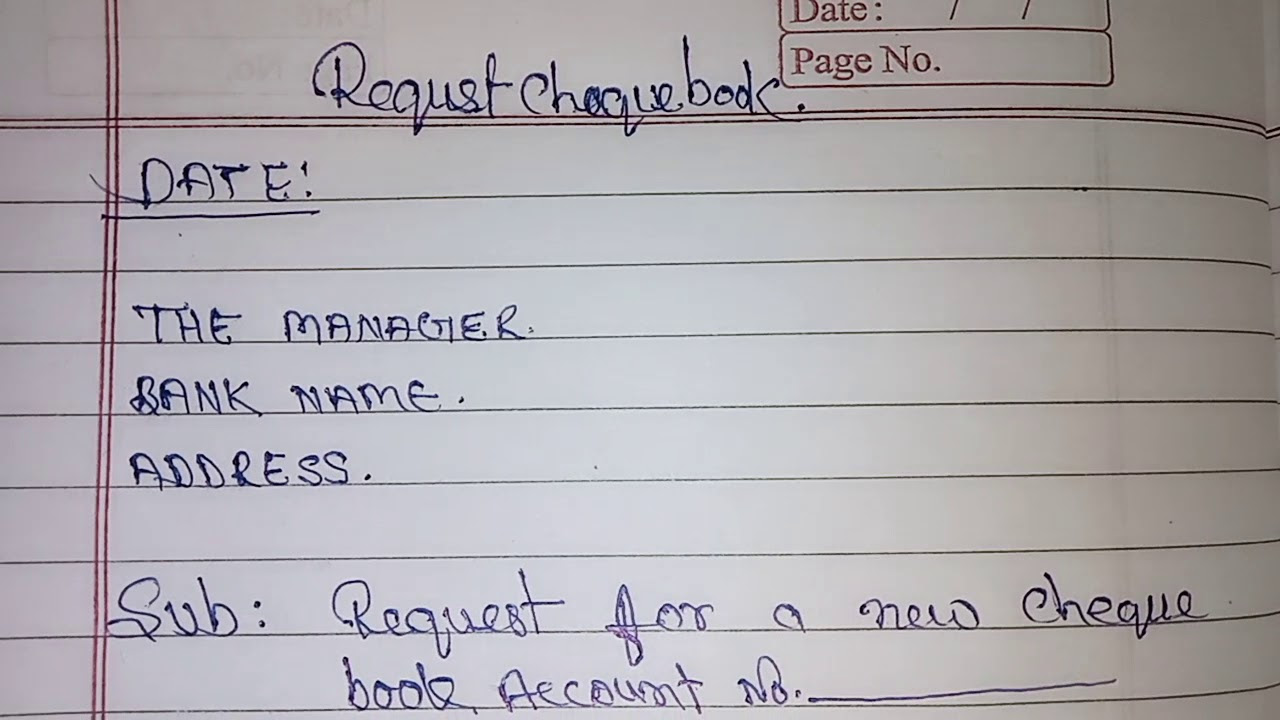 Date: / /
Page No.
Requst Chequebook.
DATE:
THE MANAGER.
BANK NAME.
ADDRESS.
Sub: Request for a new Cheque
book Account No.